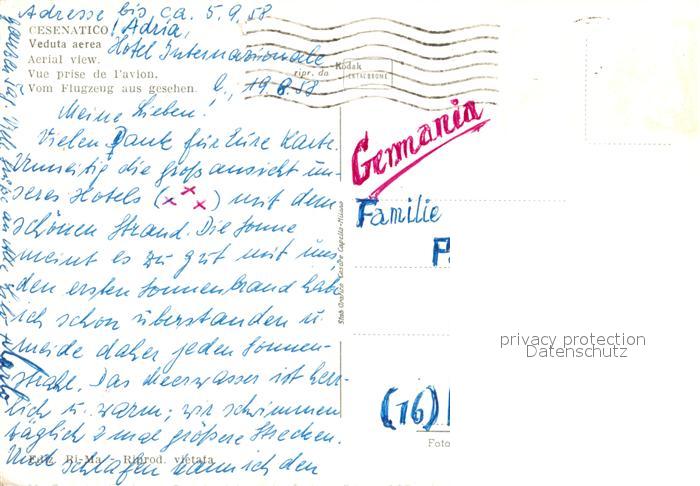 Adresse bis ca. 5.9.58
CESENATICO / Adria,
Veduta aerea Hotel Internazionale
Aerial view.
Vue prise de l'avion.
Vom Flugzeug aus gesehen.
ripr. da Kodak
EKTACHROME
C., 19.8.58
Meine Lieben!
Vielen Dank für Eure Karte.
Umseitig die Großansicht un-
seres Hotels (xxx) mit dem
schönen Strand. Die Sonne
meint es zu gut mit uns,
den ersten Sonnenbrand habe
ich schon überstanden u.
meide daher jeden Sonnen-
strahl. Das Meerwasser ist herr-
lich u. warm; wir schwimmen
täglich 2 mal größere Strecken.
Und schlafen kann ich den
ganzen Tag. Viele Grüße an alle
Ediz. Bi-Ma - Riprod. vietata
Stab. Grafico Cesare Capello-Milano
Germania
Familie
P.
(16)
Foto
privacy protection
Datenschutz